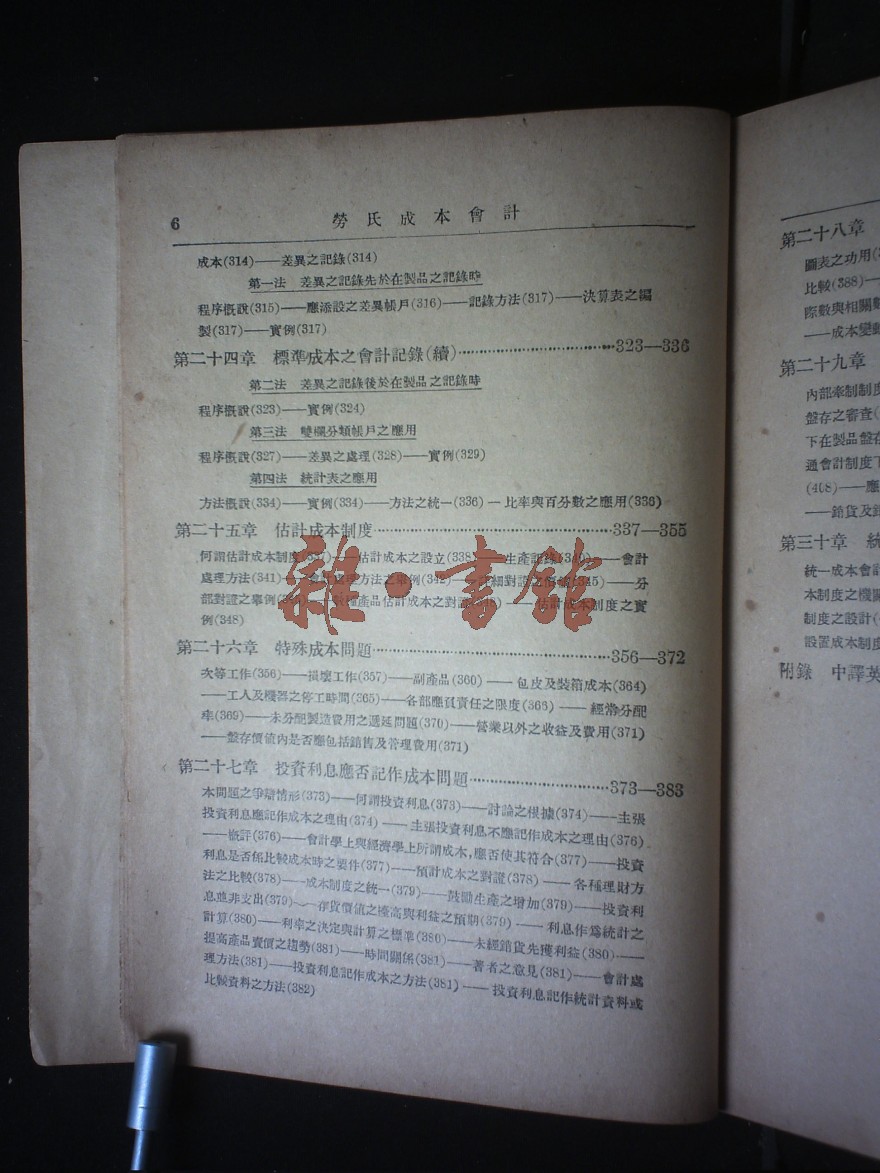 6 勞氏成本會計
成本(314)——差異之記錄(314)
第一法 差異之記錄先於在製品之記錄時
程序概說(315)——應添設之差異帳戶(316)——記錄方法(317)——決算表之編
製(317)——實例(317)
第二十四章 標準成本之會計記錄(續)……323—336
第二法 差異之記錄後於在製品之記錄時
程序概說(323)——實例(324)
第三法 雙欄分類帳戶之應用
程序概說(327)——差異之處理(328)——實例(329)
第四法 統計表之應用
方法概說(334)——實例(334)——方法之統一(336)—比率與百分數之應用(336)
第二十五章 估計成本制度……337—355
何謂估計成本制度(337)——估計成本之設立(338)——生產記錄(340)——會計
處理方法(341)——會計處理方法之舉例(342)——詳細對證之(345)——分
部對證之舉例——產品估計成本之對證——估計成本制度之實
例(348)
第二十六章 特殊成本問題……356—372
次等工作(356)——損壞工作(357)——副產品(360)——包皮及裝箱成本(364)
——工人及機器之停工時間(365)——各部應負責任之限度(366)——經常分配
率(369)——未分配製造費用之遞延問題(370)——營業以外之收益及費用(371)
——盤存價值內是否應包括銷售及管理費用(371)
第二十七章 投資利息應否記作成本問題……373—383
本問題之爭辯情形(373)——何謂投資利息(373)——討論之根據(374)——主張
投資利息應記作成本之理由(374)——主張投資利息不應記作成本之理由(376)
——概評(376)——會計學上與經濟學上所謂成本,應否使其符合(377)——投資
利息是否係比較成本時之要件(377)——預計成本之對證(378)——各種理財方
法之比較(378)——成本制度之統一(379)——鼓勵生產之增加(379)——投資利
息並非支出(379)——存貨價值之擡高與利益之預期(379)——利息作為統計之
計算(380)——利率之決定與計算之標準(380)——未經銷貨先獲利益(380)——
提高產品賣價之趨勢(381)——時間關係(381)——著者之意見(381)——會計處
理方法(381)——投資利息記作成本之方法(381)——投資利息記作統計資料或
比較資料之方法(382)
雜·書館
第二十八章
圖表之功用
比較(388)—
際數與相關
——成本變
第二十九章
內部牽制制度
盤存之審查
下在製品盤存
通會計制度下
(408)——應
——銷貨及
第三十章 統
統一成本會計
本制度之機關
制度之設計
設置成本制度
附錄 中譯英